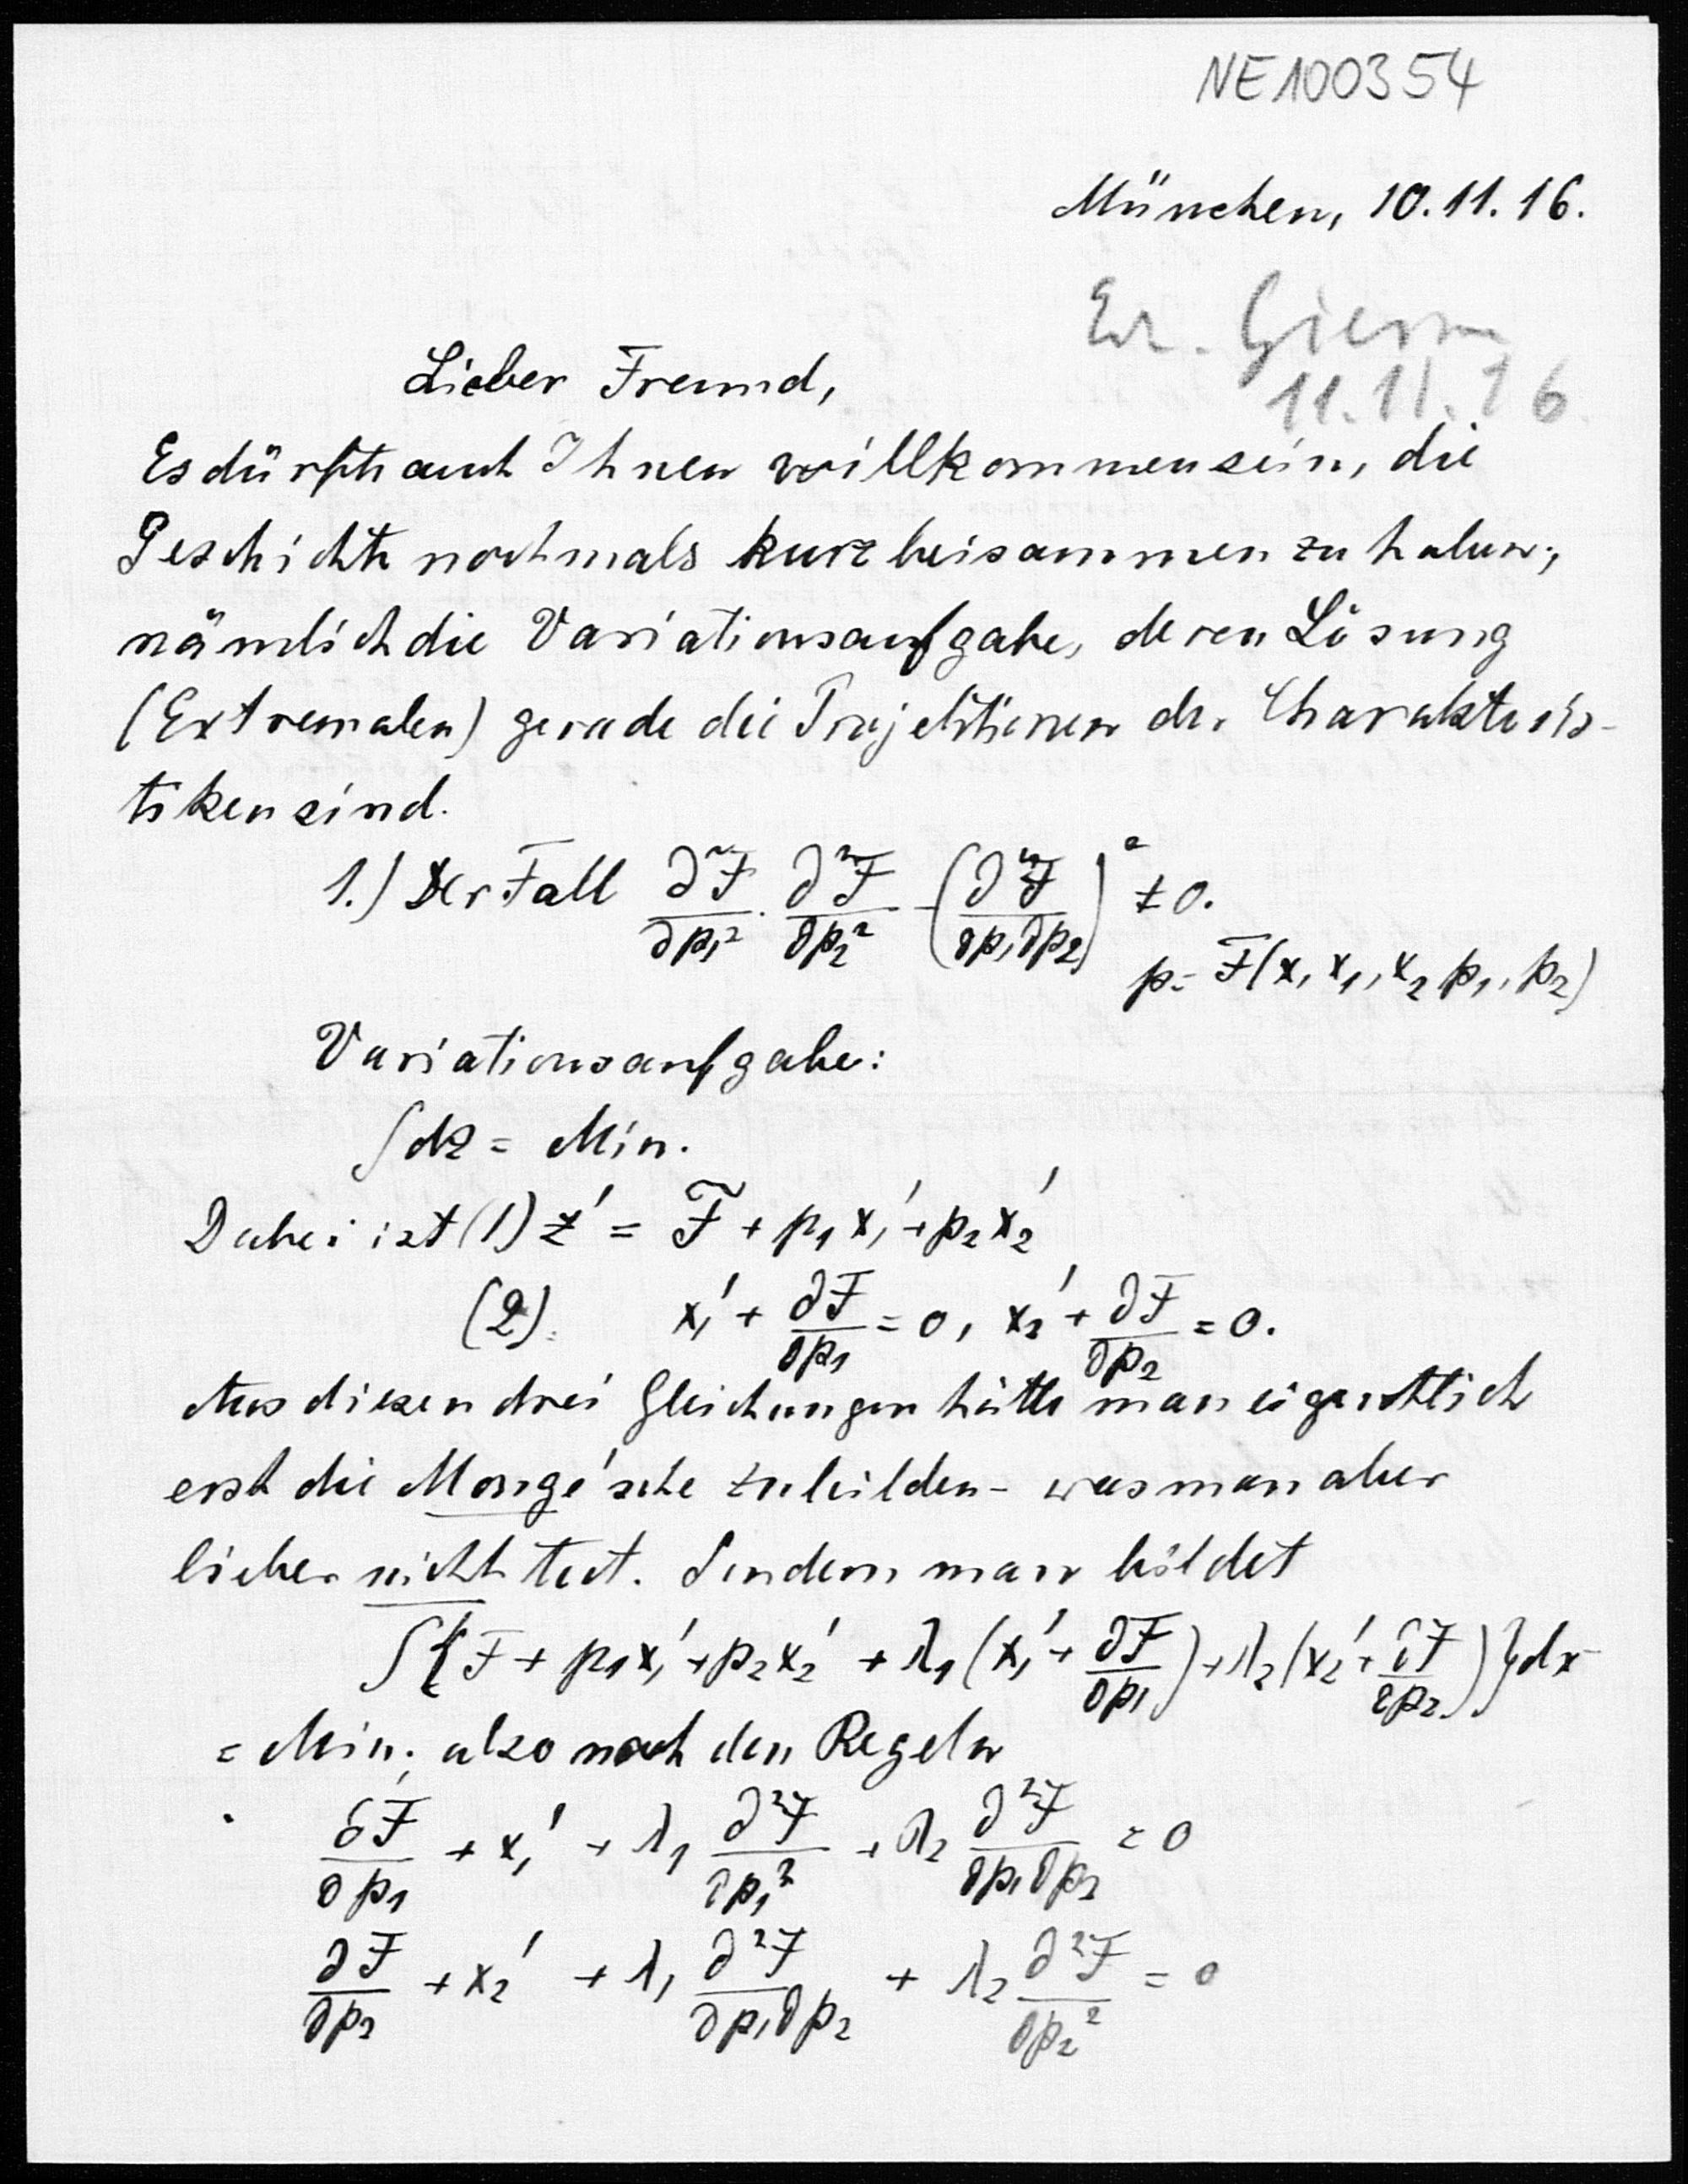 NE100354
München, 10.11.16.
11.11.16
Lieber Freund,
Es dürfte auch Ihnen willkommen sein, die
Geschichte nochmals kurz beisammen zu haben;
nämlich die Variationsaufgabe, deren Lösung
(Extremalen) gerade die Projektionen der Charakteris-
tiken sind.
1.) Der Fall ∂²F/∂p₁² · ∂²F/∂p₂² - (∂²F/∂p₁∂p₂)² ≠ 0.
p = F(x, x₁, x₂ p₁, p₂)
Variationsaufgabe:
∫dz = Min.
Dabei ist (1) z' = F + p₁x₁' + p₂x₂'
(2). x₁' + ∂F/∂p₁ = 0, x₂' + ∂F/∂p₂ = 0.
Aus diesen drei Gleichungen hätte man eigentlich
erst die Monge'sche zu bilden - was man aber
lieber nicht tut. Sondern man bildet
∫{F + p₁x₁' + p₂x₂' + λ₁(x₁' + ∂F/∂p₁) + λ₂(x₂' + ∂F/∂p₂)}dx
= Min., also nach den Regeln
∂F/∂p₁ + x₁' + λ₁ ∂²F/∂p₁² + λ₂ ∂²F/∂p₁∂p₂ = 0
∂F/∂p₂ + x₂' + λ₁ ∂²F/∂p₁∂p₂ + λ₂ ∂²F/∂p₂² = 0